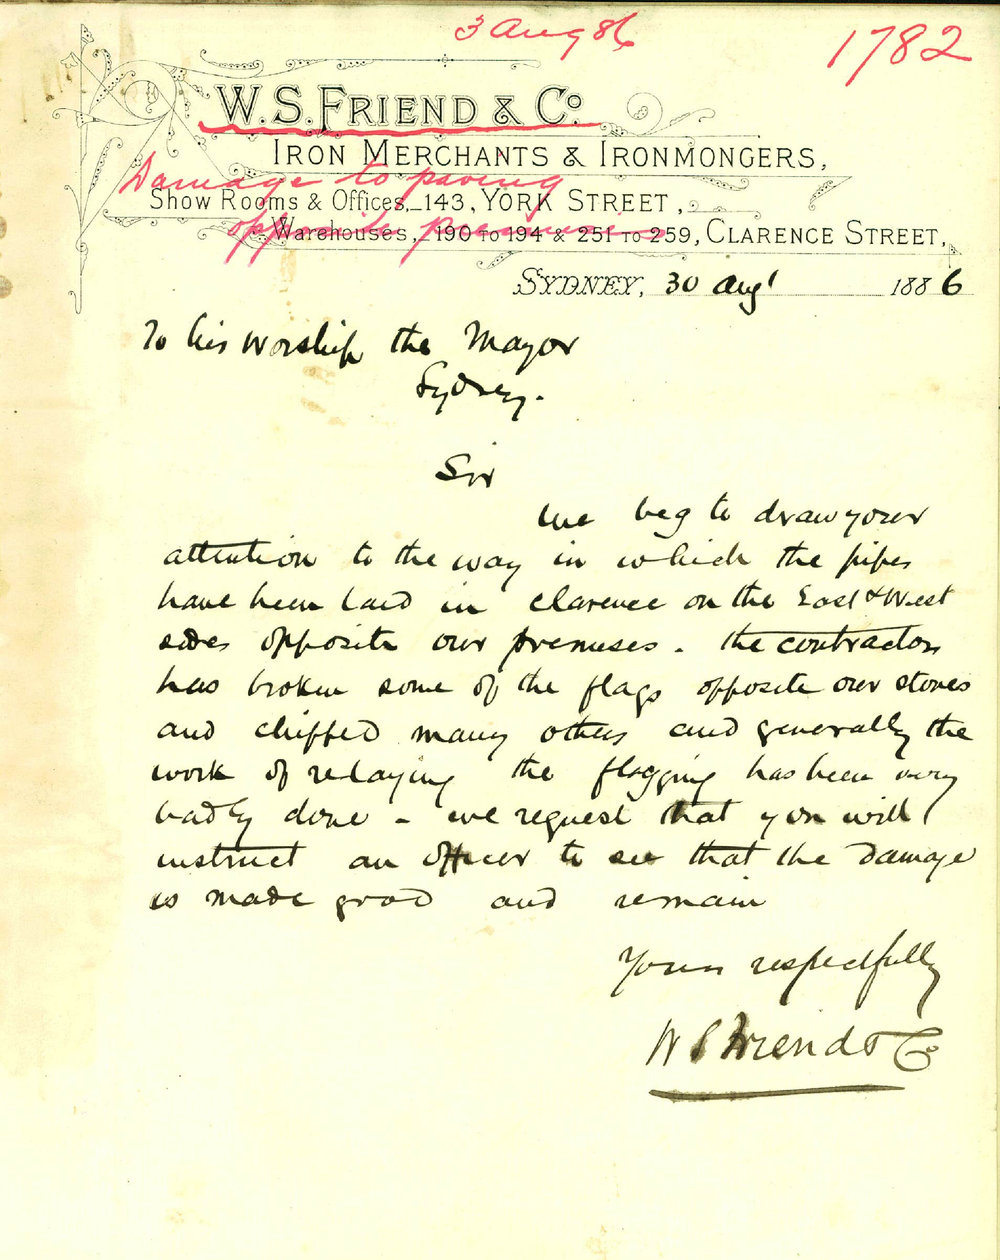 3 Aug 86
1782
W. S. FRIEND & Co.
IRON MERCHANTS & IRONMONGERS,
Damage to paving
Show Rooms & Offices, 143, YORK STREET,
opposite premises
Warehouses, 190 TO 194 & 251 TO 259, CLARENCE STREET,
SYDNEY, 30 Augt 1886
To his Worship the Mayor
Sydney.
Sir
We beg to draw your
attention to the way in which the pipes
have been laid in Clarence on the East & West
sides opposite our premises. the contractors
has broken some of the flags opposite our stores
and chipped many others and generally the
work of relaying the flagging has been very
badly done - we request that you will
instruct an officer to see that the damage
is made good and remain
Yours respectfully
W S Friend & Co